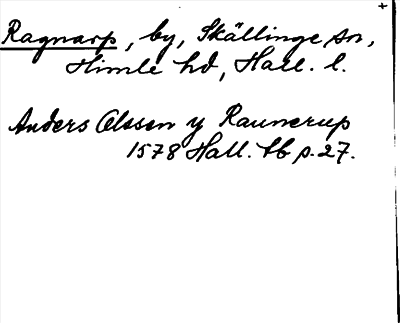 +
Ragnarp, by, Skällinge sn,
Himle hd, Hall. l.
Anders Olssen y Raunerup
1578 Hall. tb p. 27.